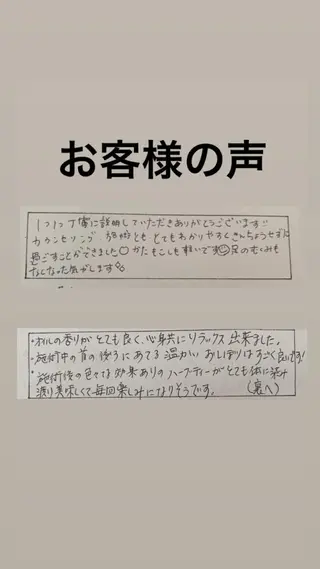 お客様の声
1つ1つ丁寧に説明していただきありがとうございます!!
カウンセリング、施術ともとてもわかりやすくきんちょうせずに
過ごすことができました○かたもこしも軽いです☺足のむくみも
なくなった気がします
・オイルの香りがとても良く、心身共にリラックス出来ました。
・施術中の首の後ろにあてる温かいおしぼりはすごく良いです!
・施術後の色々な効果ありのハーブティーがとても体に染み
渡り美味しくて毎回楽しみになりそうです。 (裏へ)